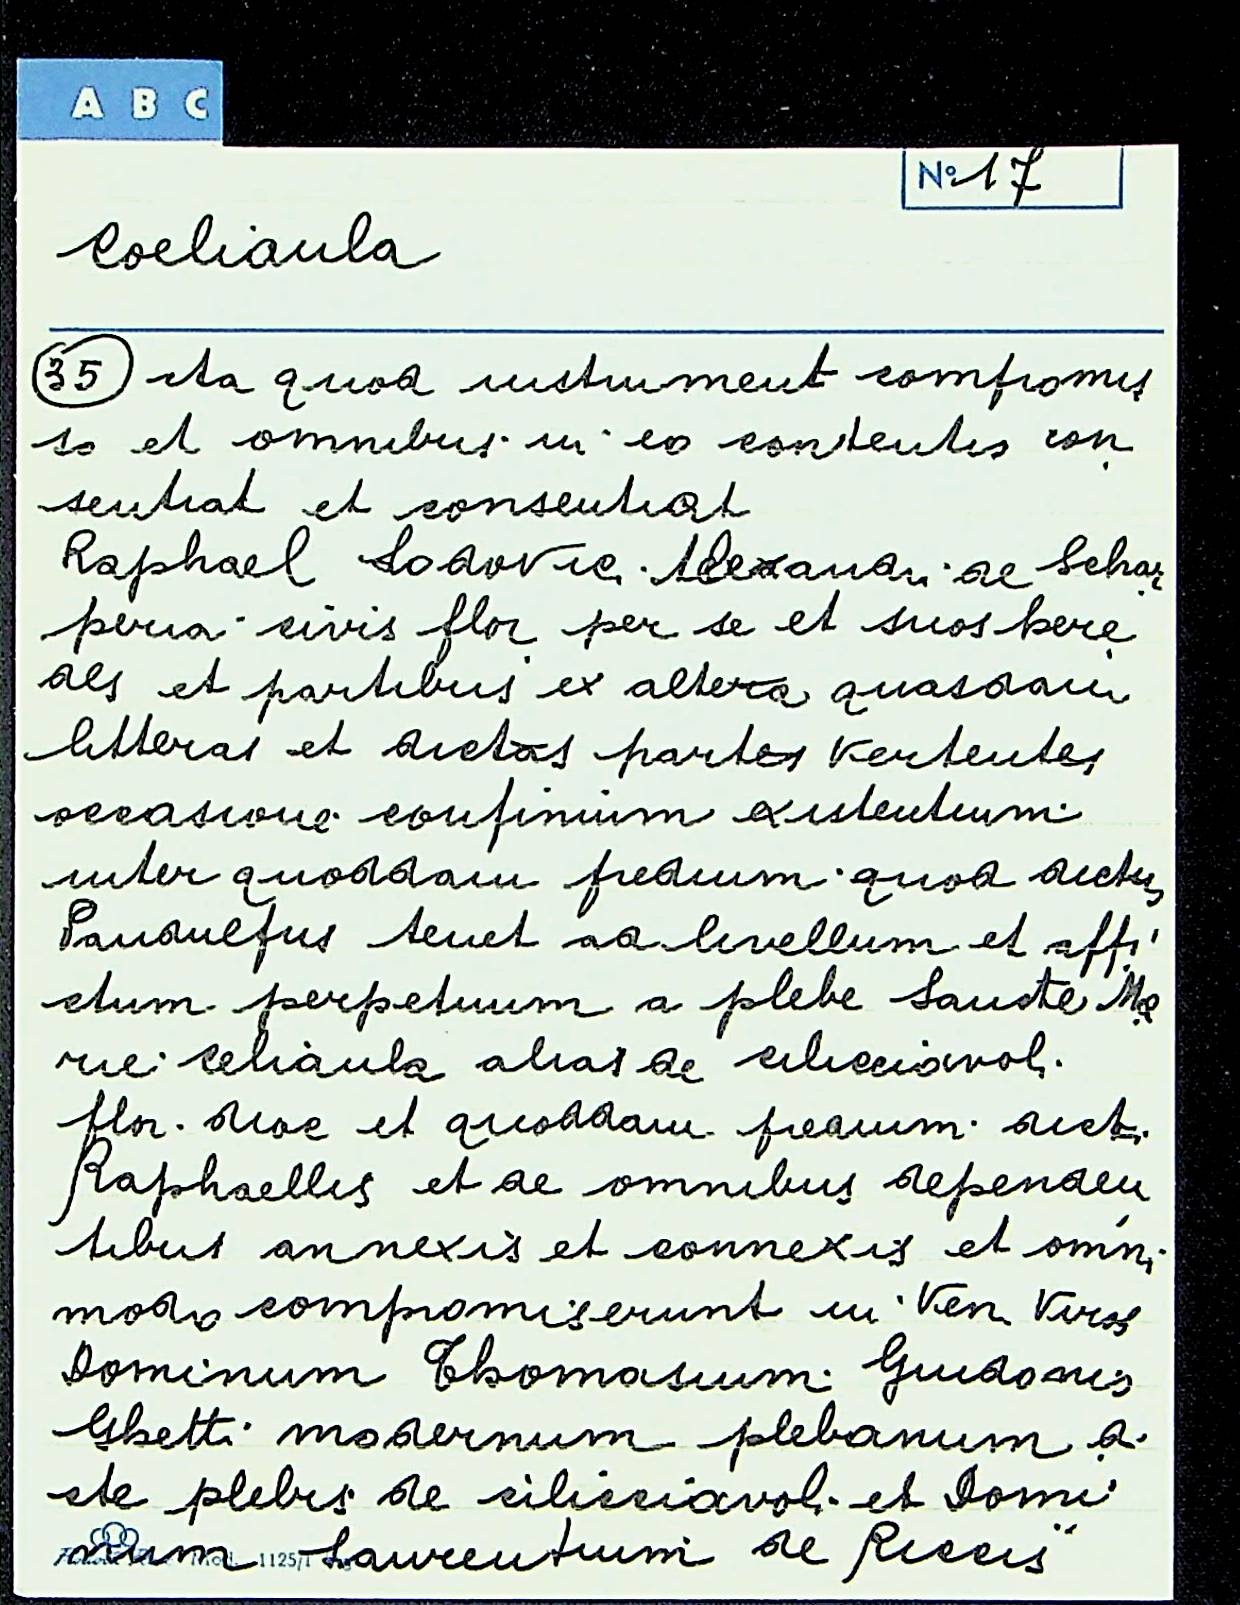 A B C
Nº 17
Coeliaula
35 ita quod instrument compromis
so et omnibus in eo contentis con
sentiat et consentiat
Raphael Lodovic. Alexandri de Schar
peria civis flor per se et suos here
des et partibus ex altera quasdam
litteras et dictas partes vertentes
occasione confinium existentium
inter quoddam predium quod dictus
Pandulfus tenet ad livellum et affi
ctum perpetuum a plebe Sancte Ma
rie Celiaula alias de cilicciavol.
flor. dioc et quoddam predium dict.
Raphaellis et de omnibus dependen
tibus annexis et connexis et omni
modo compromiserunt in Ven. Viros
Dominum Thomasium Guidonis
Ghetti modernum plebanum di
cte plebis de cilicciavol. et Domi
num Laurentium de Riccis"
1125/1